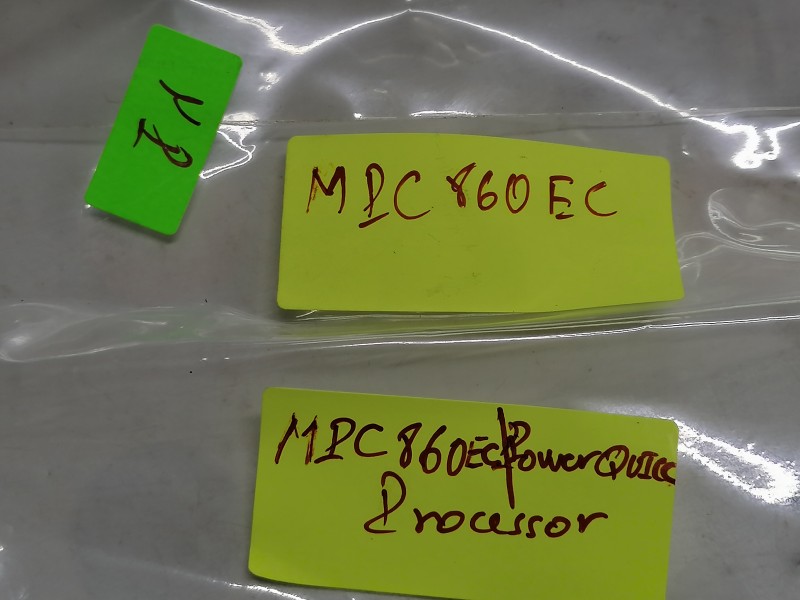 MPC 860 EC
MPC 860EC|PowerQUICC
Processor